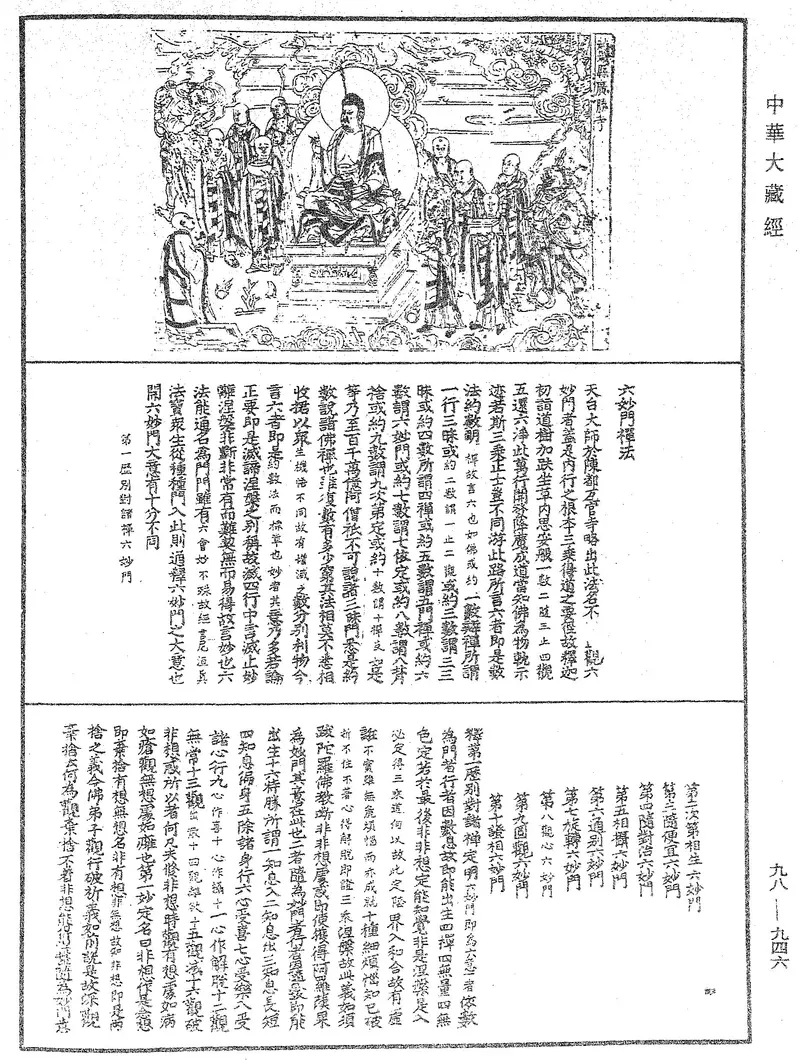 中華大藏經
趙城縣廣勝寺
六妙門禪法
天台大師於陳都瓦官寺略出此法名不 止觀六
妙門者蓋是內行之根本三乘得道之要徑故釋迦
初詣道樹加趺坐草內思安般一數二隨三止四觀
五還六淨此萬行開發降魔成道當知佛為物軌示
迹若斯三乘正士豈不同游此路所言六者即是數
法約數明禪故言六也如佛或約一數辯禪所謂
一行三昧或約二數謂一止二觀或約三數謂三三
昧或約四數所謂四禪或約五數謂五門禪或約六
數謂六妙門或約七數謂七依定或約八數謂八背
捨或約九數謂九次第定或約十數謂十禪支如是
等乃至百千萬億阿僧祇不可說諸三昧門悉是約
數說諸佛禪也雖復數有多少窮其法相莫不悉相
收攝以衆生機悟不同故有增減之數分別利物今
言六者即是約數法而標章也妙者其意乃多若論
正要即是滅諦涅槃之別稱故滅四行中言滅止妙
離涅槃非斷非常有而難契無而易得故言妙也六
法能通名為門門雖有六會妙不殊故經言泥洹真
法寶衆生從種種門入此則通釋六妙門之大意也
開六妙門大意有十分不同
第一歷別對諸禪六妙門
第二次第相生六妙門
第三隨便宜六妙門
第四隨對治六妙門
第五相攝六妙門
第六通別六妙門
第七旋轉六妙門
第八觀心六妙門
第九圓觀六妙門
第十證相六妙門
釋第一歷別對諸禪定明六妙門即為六意一者依數
為門者行者因數息故即能出生四禪四無量四無
色定若於最後非非想定能知覺非是涅槃是人
必定得三乘道何以故此定陰界入和合故有虛
誑不實雖無麁煩惱而亦成就十種細煩惱知已破
折不住不著心得解脫即證三乘涅槃故此義如須
跋陀羅佛教斷非非想處惑即便獲得阿羅漢果
為妙門其意在此也二者隨為妙門者行者因隨息故即能
出生十六特勝所謂一知息入二知息出三知息長短
四知息徧身五除諸身行六心受喜七心受樂八受
諸心行九心作喜十心作攝十一心作解脫十二觀
無常十三觀出散十四觀離欲十五觀滅十六觀棄
捨云何為觀棄捨
如瘡觀無想處如癡也第一妙定名曰非想作是念想
即棄捨有想無想名非有想非無想故知非想即是兩
捨之義今佛弟子觀行破析義如前說是故深觀
九八——九四六